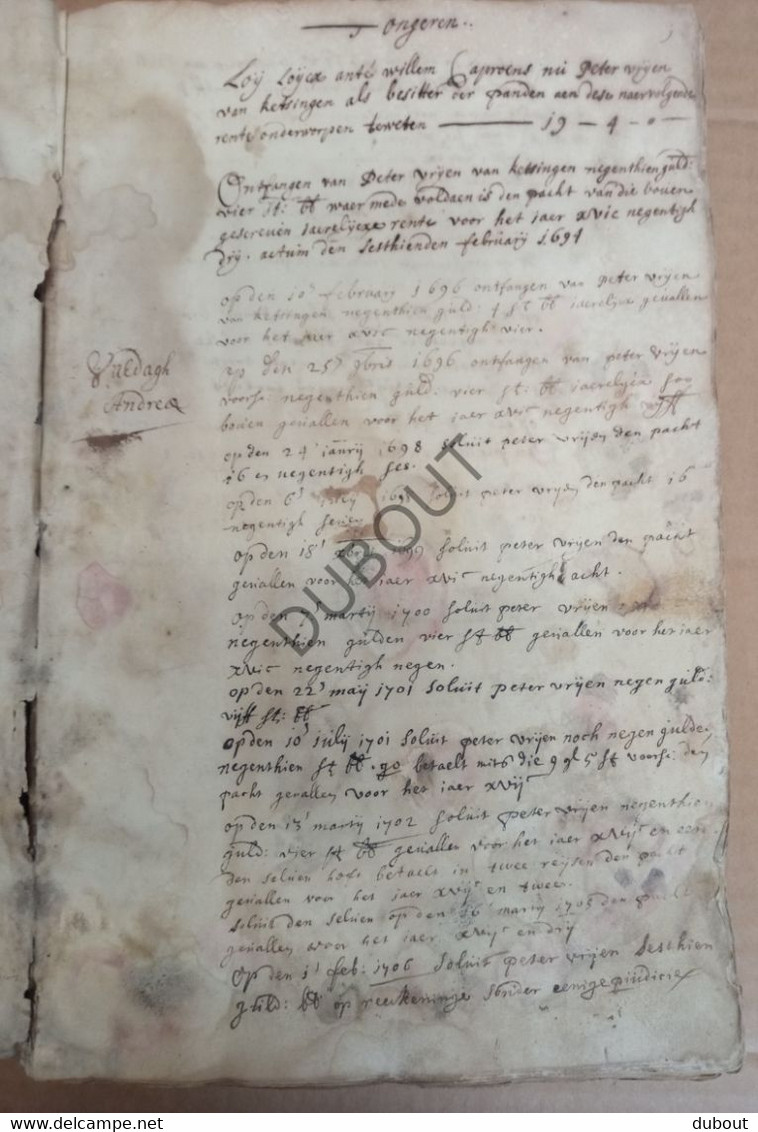 Tongeren..
Loÿ Loÿex ante willem Caproens nu Peter vrÿen
van ketsingen als besitter der panden aen dese naervolgende
rente onderworpen teweten 19 - 4 - 0
Ontfangen van Peter vrÿen van ketsingen negenthien guld:
vier st: bb waer mede voldaen is den pacht van die boven
geschreven iaerelÿcxe rente voor het iaer xvic negentigh
drÿ. actum den sesthienden februarÿ 1694
op den 10 februarÿ 1696 ontfangen van peter vrÿen
van ketsingen negenthien guld. 4 st bb iaerelÿcx gevallen
voor het iaer xvic negentigh vier.
op den 25 9bris 1696 ontfangen van peter vrÿen
voors: negenthien guld. vier st: bb iaerelÿcx
boven gevallen voor het iaer xvic negentigh vÿff
Vuldagh
Andreæ
op den 24 ianrÿ 1698 soluit peter vrÿen den pacht
16 en negentigh ses.
op den 6 soluit peter vrÿen den pacht 16
negentigh seven
op den 18 xbris 1699 soluit peter vrÿen den pacht
gevallen voor het iaer xvic negentigh acht.
op den martÿ 1700 soluit peter vrÿen
negenthien gulden vier st bb gevallen voor het iaer
xvic negentigh negen.
op den 22 maÿ 1701 soluit peter vrÿen negen guld:
vÿff st: bb
op den 10 iulÿ 1701 soluit peter vrÿen noch negen gulde
negenthien st bb. qo betaelt mits die 9 gl 5 st voors: den
pacht gevallen voor het iaer xvijc
op den 13 martÿ 1702 soluit peter vrÿen negenthien
guld: vier st bb gevallen voor het iaer xvijc en een
den selven heeft betaelt in twee reÿsen den pacht
gevallen voor het iaer xvijc en twee.
soluit den selven op den 16 martÿ 1705 den pacht
gevallen voor het iaer xvijc en drÿ
Op den 1 feb: 1706 soluit peter vrÿen sesthien
guld: bb op reeckeninge sonder eenige preiudicie
DUBOUT
delcampe.net
dubout